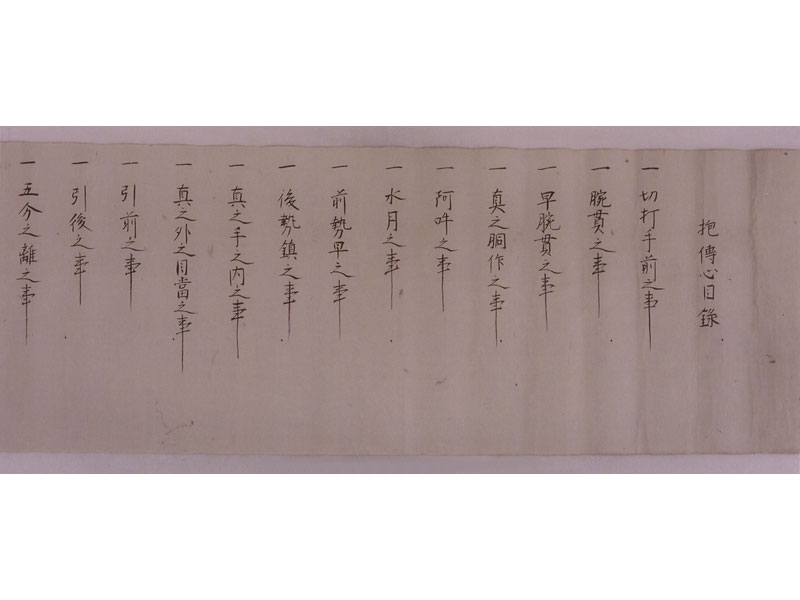 抱傳心目録
一切打手前之事
一腕貫之事
一早腕貫之事
一真之胴作之事
一阿吽之事
一水月之事
一前勢早之事
一後勢鎮之事
一真之手之内之事
一真之外之目當之事
一引前之事
一引後之事
一五分之離之事